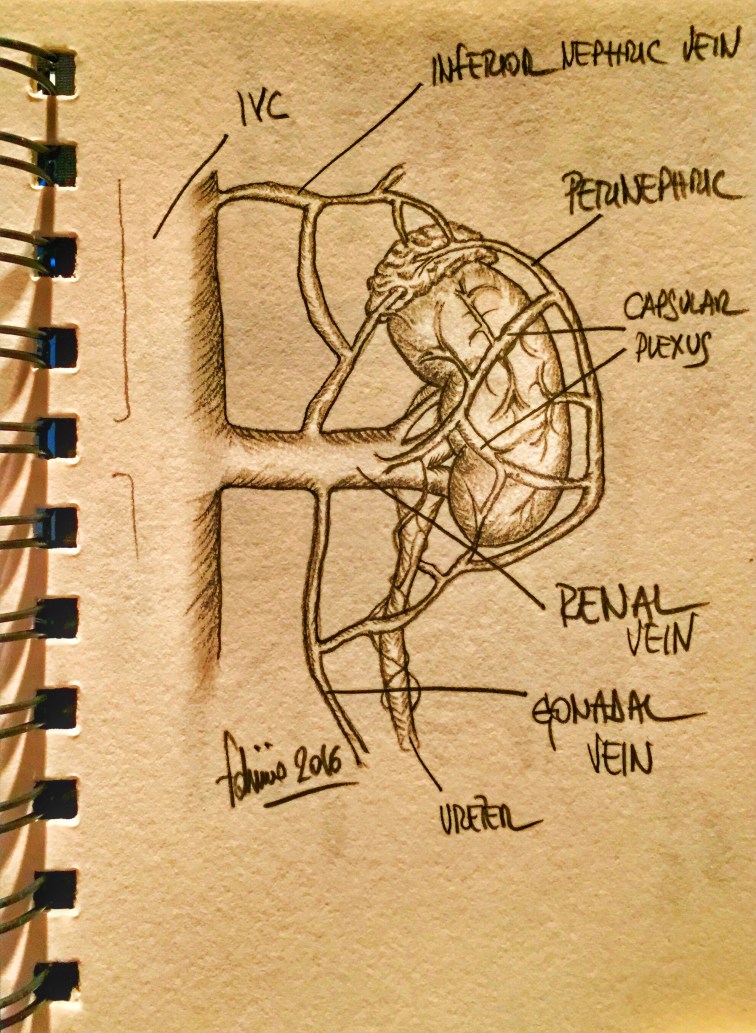 INFERIOR NEPHRIC VEIN
IVC
PERINEPHRIC
CAPSULAR
PLEXUS
RENAL
VEIN
GONADAL
VEIN
2016
URETER